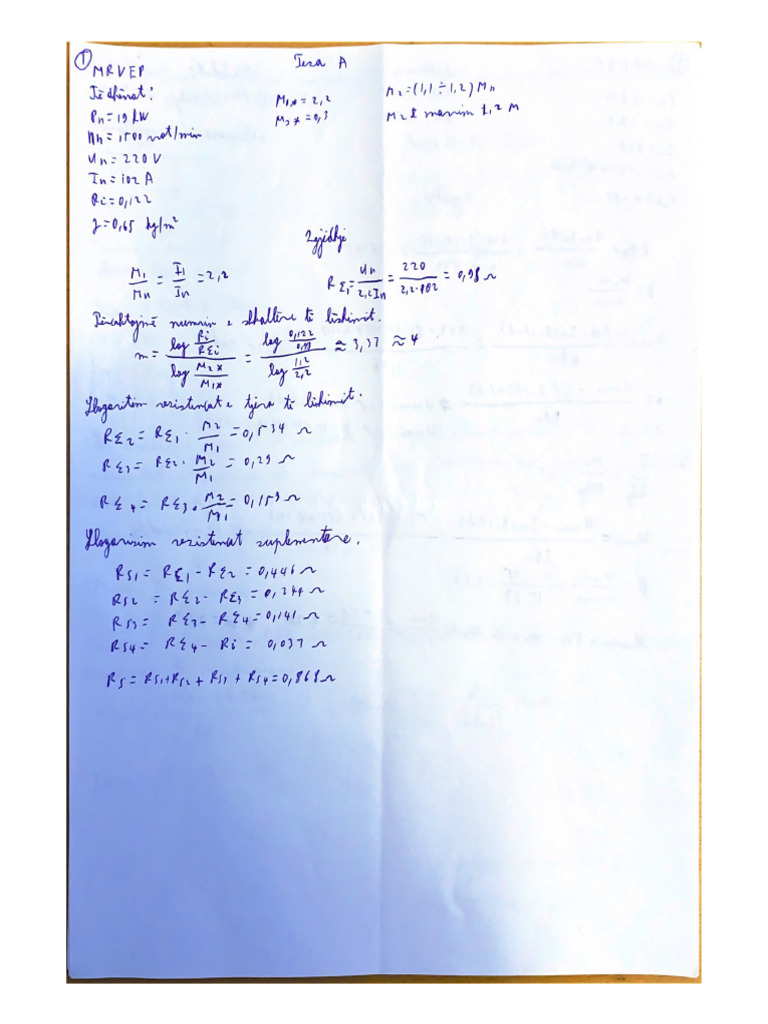 ① MRVEP
Teza A
Të dhënat:
Pn = 19 kW
nn = 1500 rrot/min
Un = 220 V
In = 102 A
Ri = 0,122
J = 0,65 kg/m²
M1* = 2,2
M3* = 0,3
M2 = (1,1 ÷ 1,2) Mn
M2 e marrim 1,2 M
Zgjidhje
M1/Mn = I1/In = 2,2
RΣ1 = Un/2,2In = 220/2,2·102 = 0,98 Ω
Përcaktojmë numrin e shkallëve të lëshimit.
m = log Ri/RΣi / log M2*/M1* = log 0,122/0,98 / log 1,2/2,2 ≈ 3,37 ≈ 4
Llogaritim rezistencat e tjera të lëshimit.
RΣ2 = RΣ1 · M2/M1 = 0,534 Ω
RΣ3 = RΣ2 · M2/M1 = 0,29 Ω
RΣ4 = RΣ3 · M2/M1 = 0,159 Ω
Llogarisim rezistencat suplementare.
Rs1 = RΣ1 - RΣ2 = 0,446 Ω
Rs2 = RΣ2 - RΣ3 = 0,244 Ω
Rs3 = RΣ3 - RΣ4 = 0,141 Ω
Rs4 = RΣ4 - Ri = 0,037 Ω
Rs = Rs1 + Rs2 + Rs3 + Rs4 = 0,868 Ω